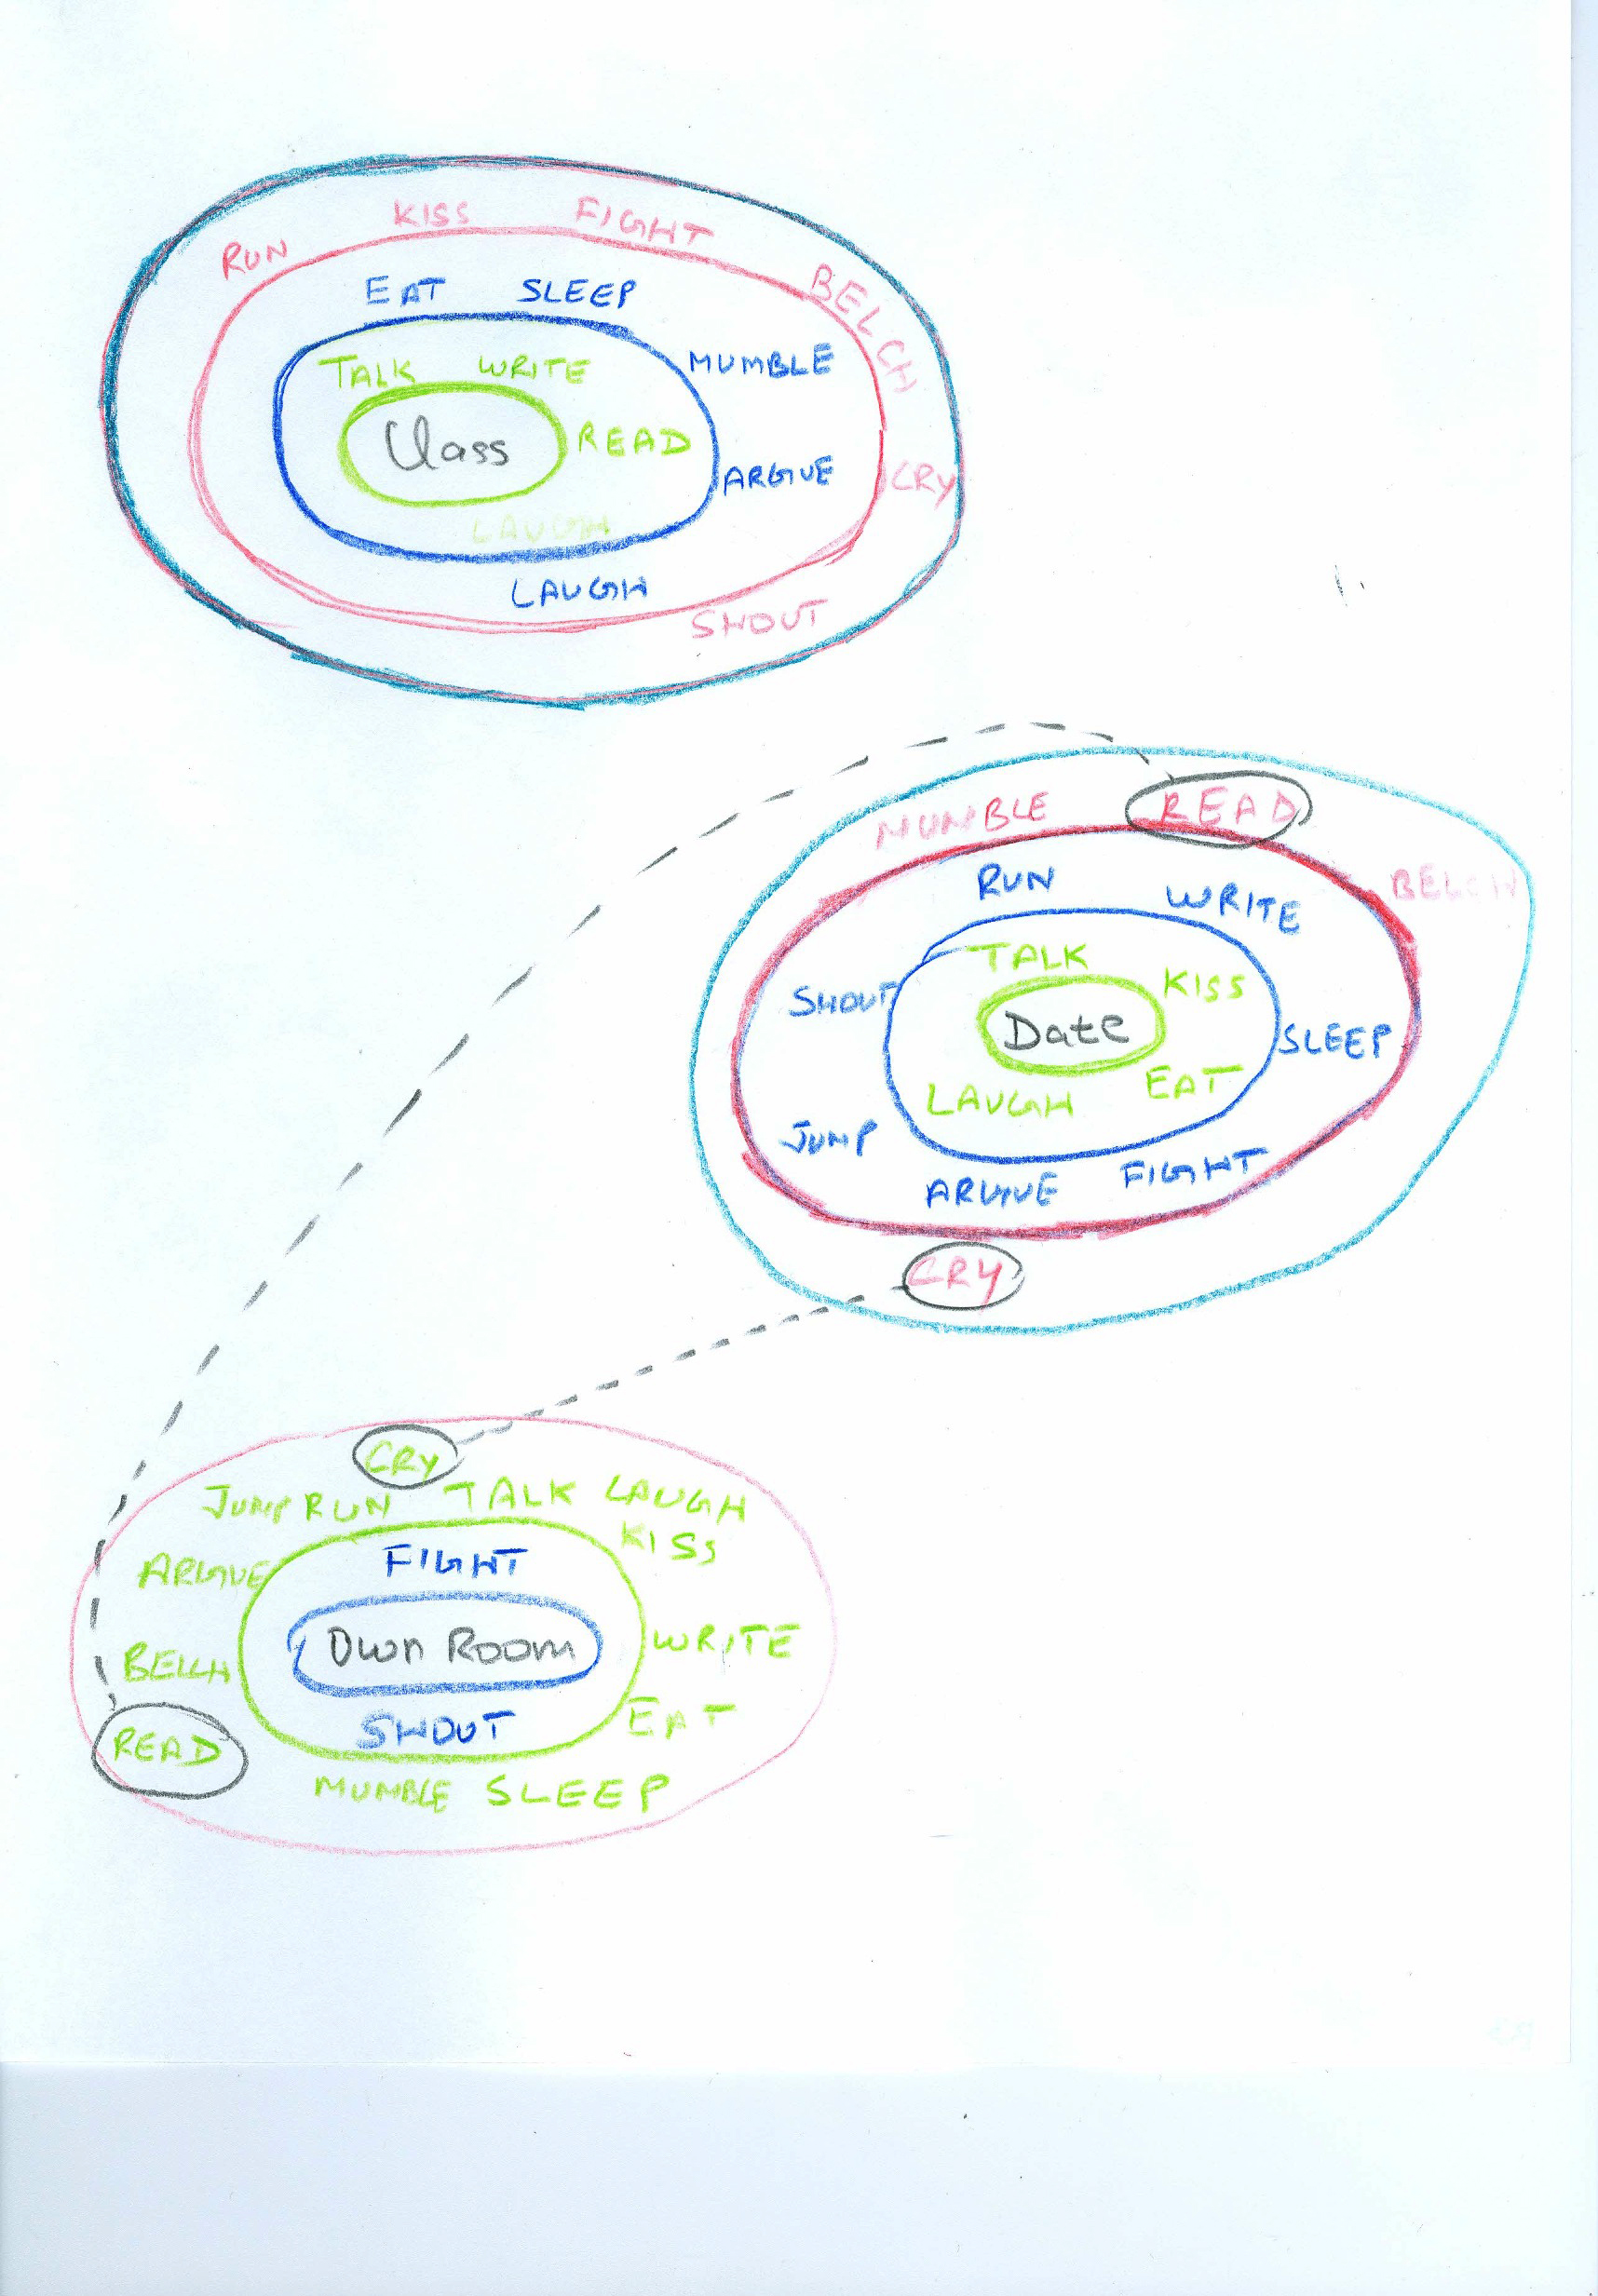 RUN KISS FIGHT BELCH
EAT SLEEP
MUMBLE
TALK WRITE
Class READ
ARGUE CRY
LAUGH
LAUGH
SHOUT
MUMBLE READ
BELCH
RUN WRITE
TALK
KISS
SHOUT
Date
SLEEP
LAUGH EAT
JUMP
ARGUE FIGHT
CRY
CRY
JUMP RUN TALK LAUGH
KISS
ARGUE FIGHT
Own Room WRITE
BELCH
READ SHOUT EAT
MUMBLE SLEEP